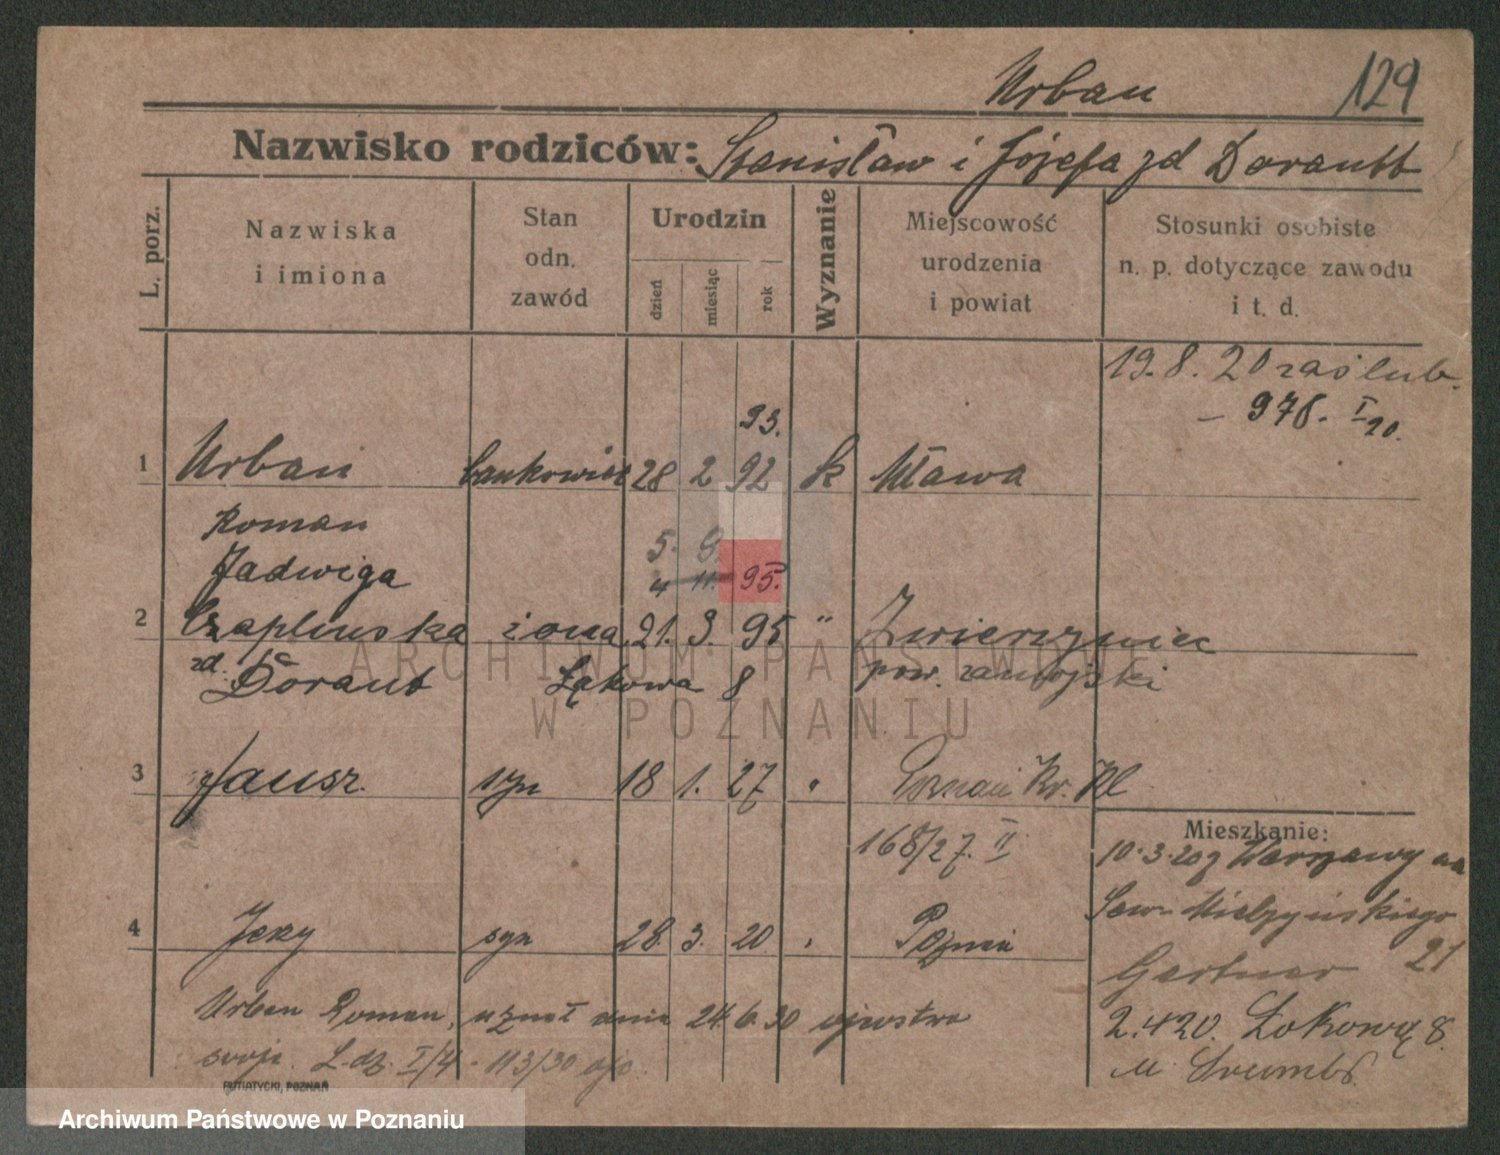 Urban 129
Nazwisko rodziców: Stanisław i Józefa zd Dorautt
L. porz.
Nazwiska i imiona
Stan odn. zawód
Urodzin
dzień miesiąc rok
Wyznanie
Miejscowość urodzenia i powiat
Stosunki osobiste n. p. dotyczące zawodu i t. d.
19. 8. 20 zaślub.
– 978. I 20.
93.
1 Urban bankowiec 28 2 92 k Mława
Roman
5. 9.
Jadwiga 4 11. 95.
2 Czaplinska żona 21. 3. 95 " Zwierzyniec
zd. Doraut Łąkowa 8 pow. zamojski
ARCHIWUM PAŃSTWOWE
W POZNANIU
3 Janusz syn 18 1. 27 " Poznań Kr. Kl
168/27. II
Mieszkanie:
10. 3. 20 z Warszawy na
Sew. Mielżyńskiego
4 Jerzy syn 28. 3. 20 " Poznań
Gartner 21
Urban Roman, uznał dnia 24 6 30 ojcostwo
2. 4 20. Łąkową 8.
swoje. L. dz. I/4 - 113/30
u
PUTIATYCKI, POZNAŃ
Archiwum Państwowe w Poznaniu